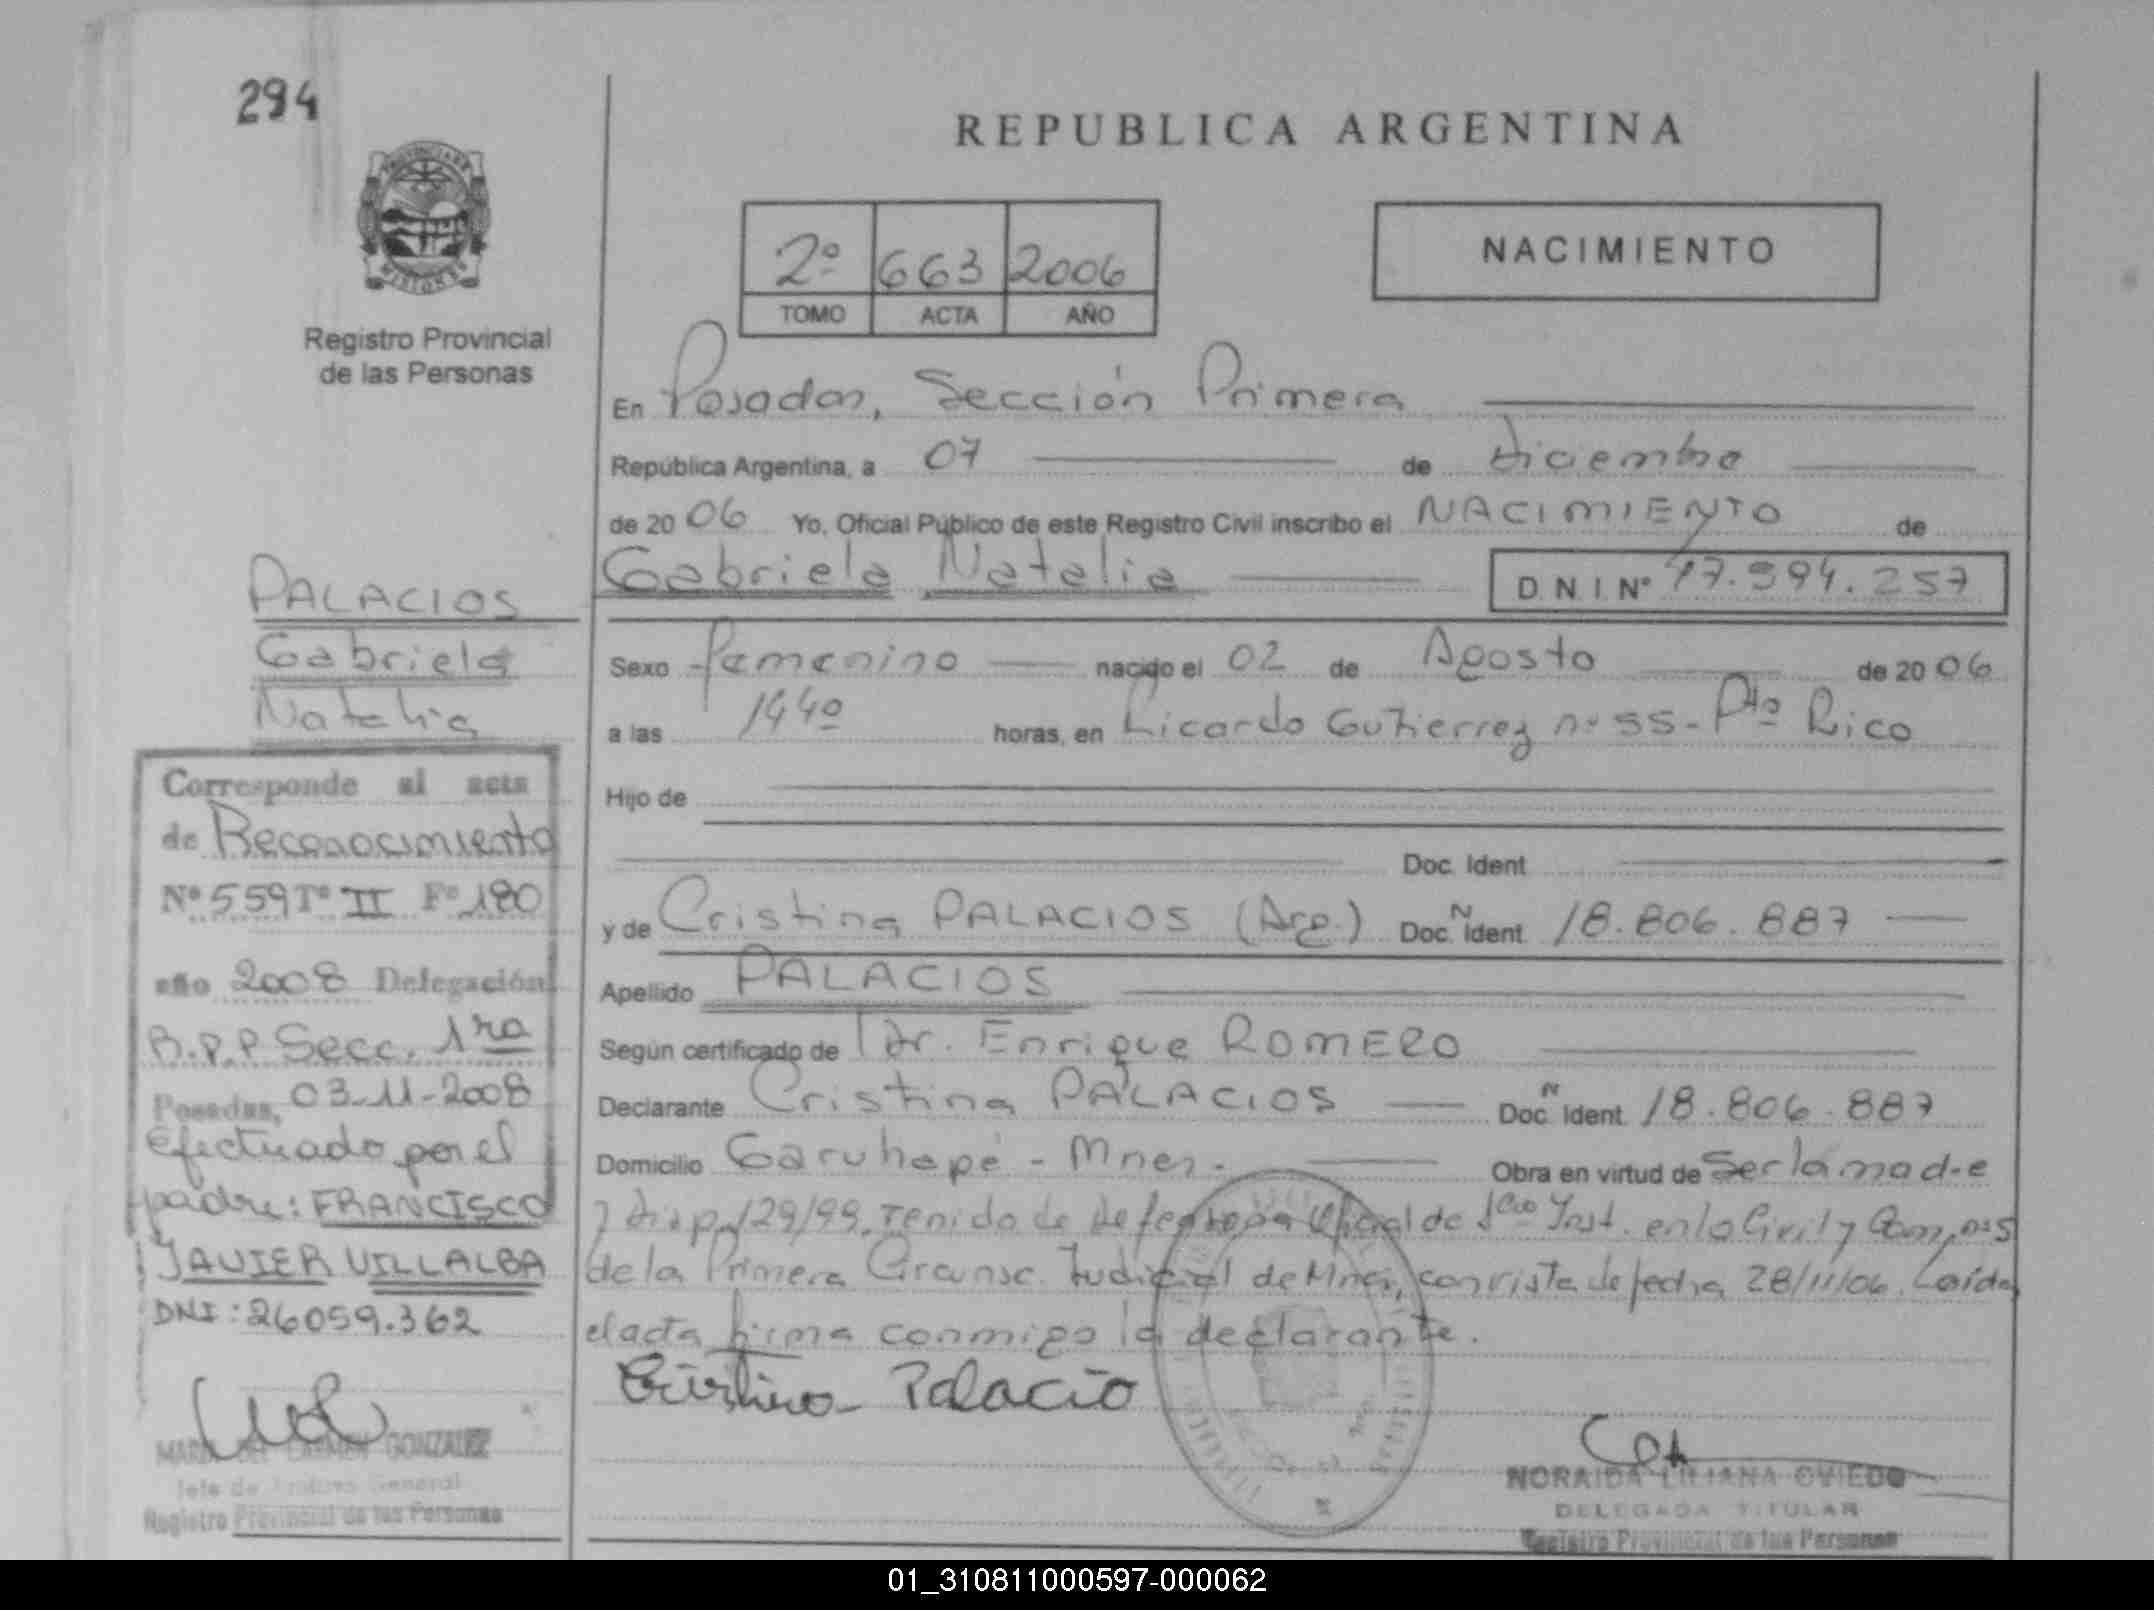 294
PROVINCIA DE
MISIONES
Registro Provincial
de las Personas
REPUBLICA ARGENTINA
2º 663 2006
TOMO ACTA AÑO
NACIMIENTO
En Posadas, Sección Primera
República Argentina, a 07 de diciembre
de 2006 Yo, Oficial Público de este Registro Civil inscribo el NACIMIENTO de
Gabriela Natalia D.N.I. Nº 47.394.257
Sexo Femenino nacido el 02 de Agosto de 2006
a las 1440 horas, en Ricardo Gutierrez nº 55 - Pto Rico
Hijo de
Doc. Ident
y de Cristina PALACIOS (Arg.) Doc. N Ident 18.806.887
Apellido PALACIOS
Según certificado de Dr. Enrique ROMERO
Declarante Cristina PALACIOS Doc. N Ident. 18.806.887
Domicilio Garuhapé - Mnes. Obra en virtud de Ser la madre
y Disp. 129/99, Tenido de Defensoria Oficial de 1era Inst. en lo Civil y Com. nº5
de la Primera Circunsc. Judicial de Mnes, con vista de fecha 28/11/06. Leída
el acta firma conmigo la declarante.
Cristina Palacio
NORAIDA LILIANA OVIEDO
DELEGADA TITULAR
Registro Provincial de las Personas
PALACIOS
Gabriela
Natalia
Corresponde al acta
de Reconocimiento
Nº 559 Tº II Fº 180
año 2008 Delegación
R.P.P. Secc. 1ra
Posadas, 03-11-2008
efectuado por el
padre: FRANCISCO
JAVIER VILLALBA
DNI: 26059.362
MARIA DEL CARMEN GONZALEZ
Jefe de Archivo General
Registro Provincial de las Personas
01_310811000597-000062